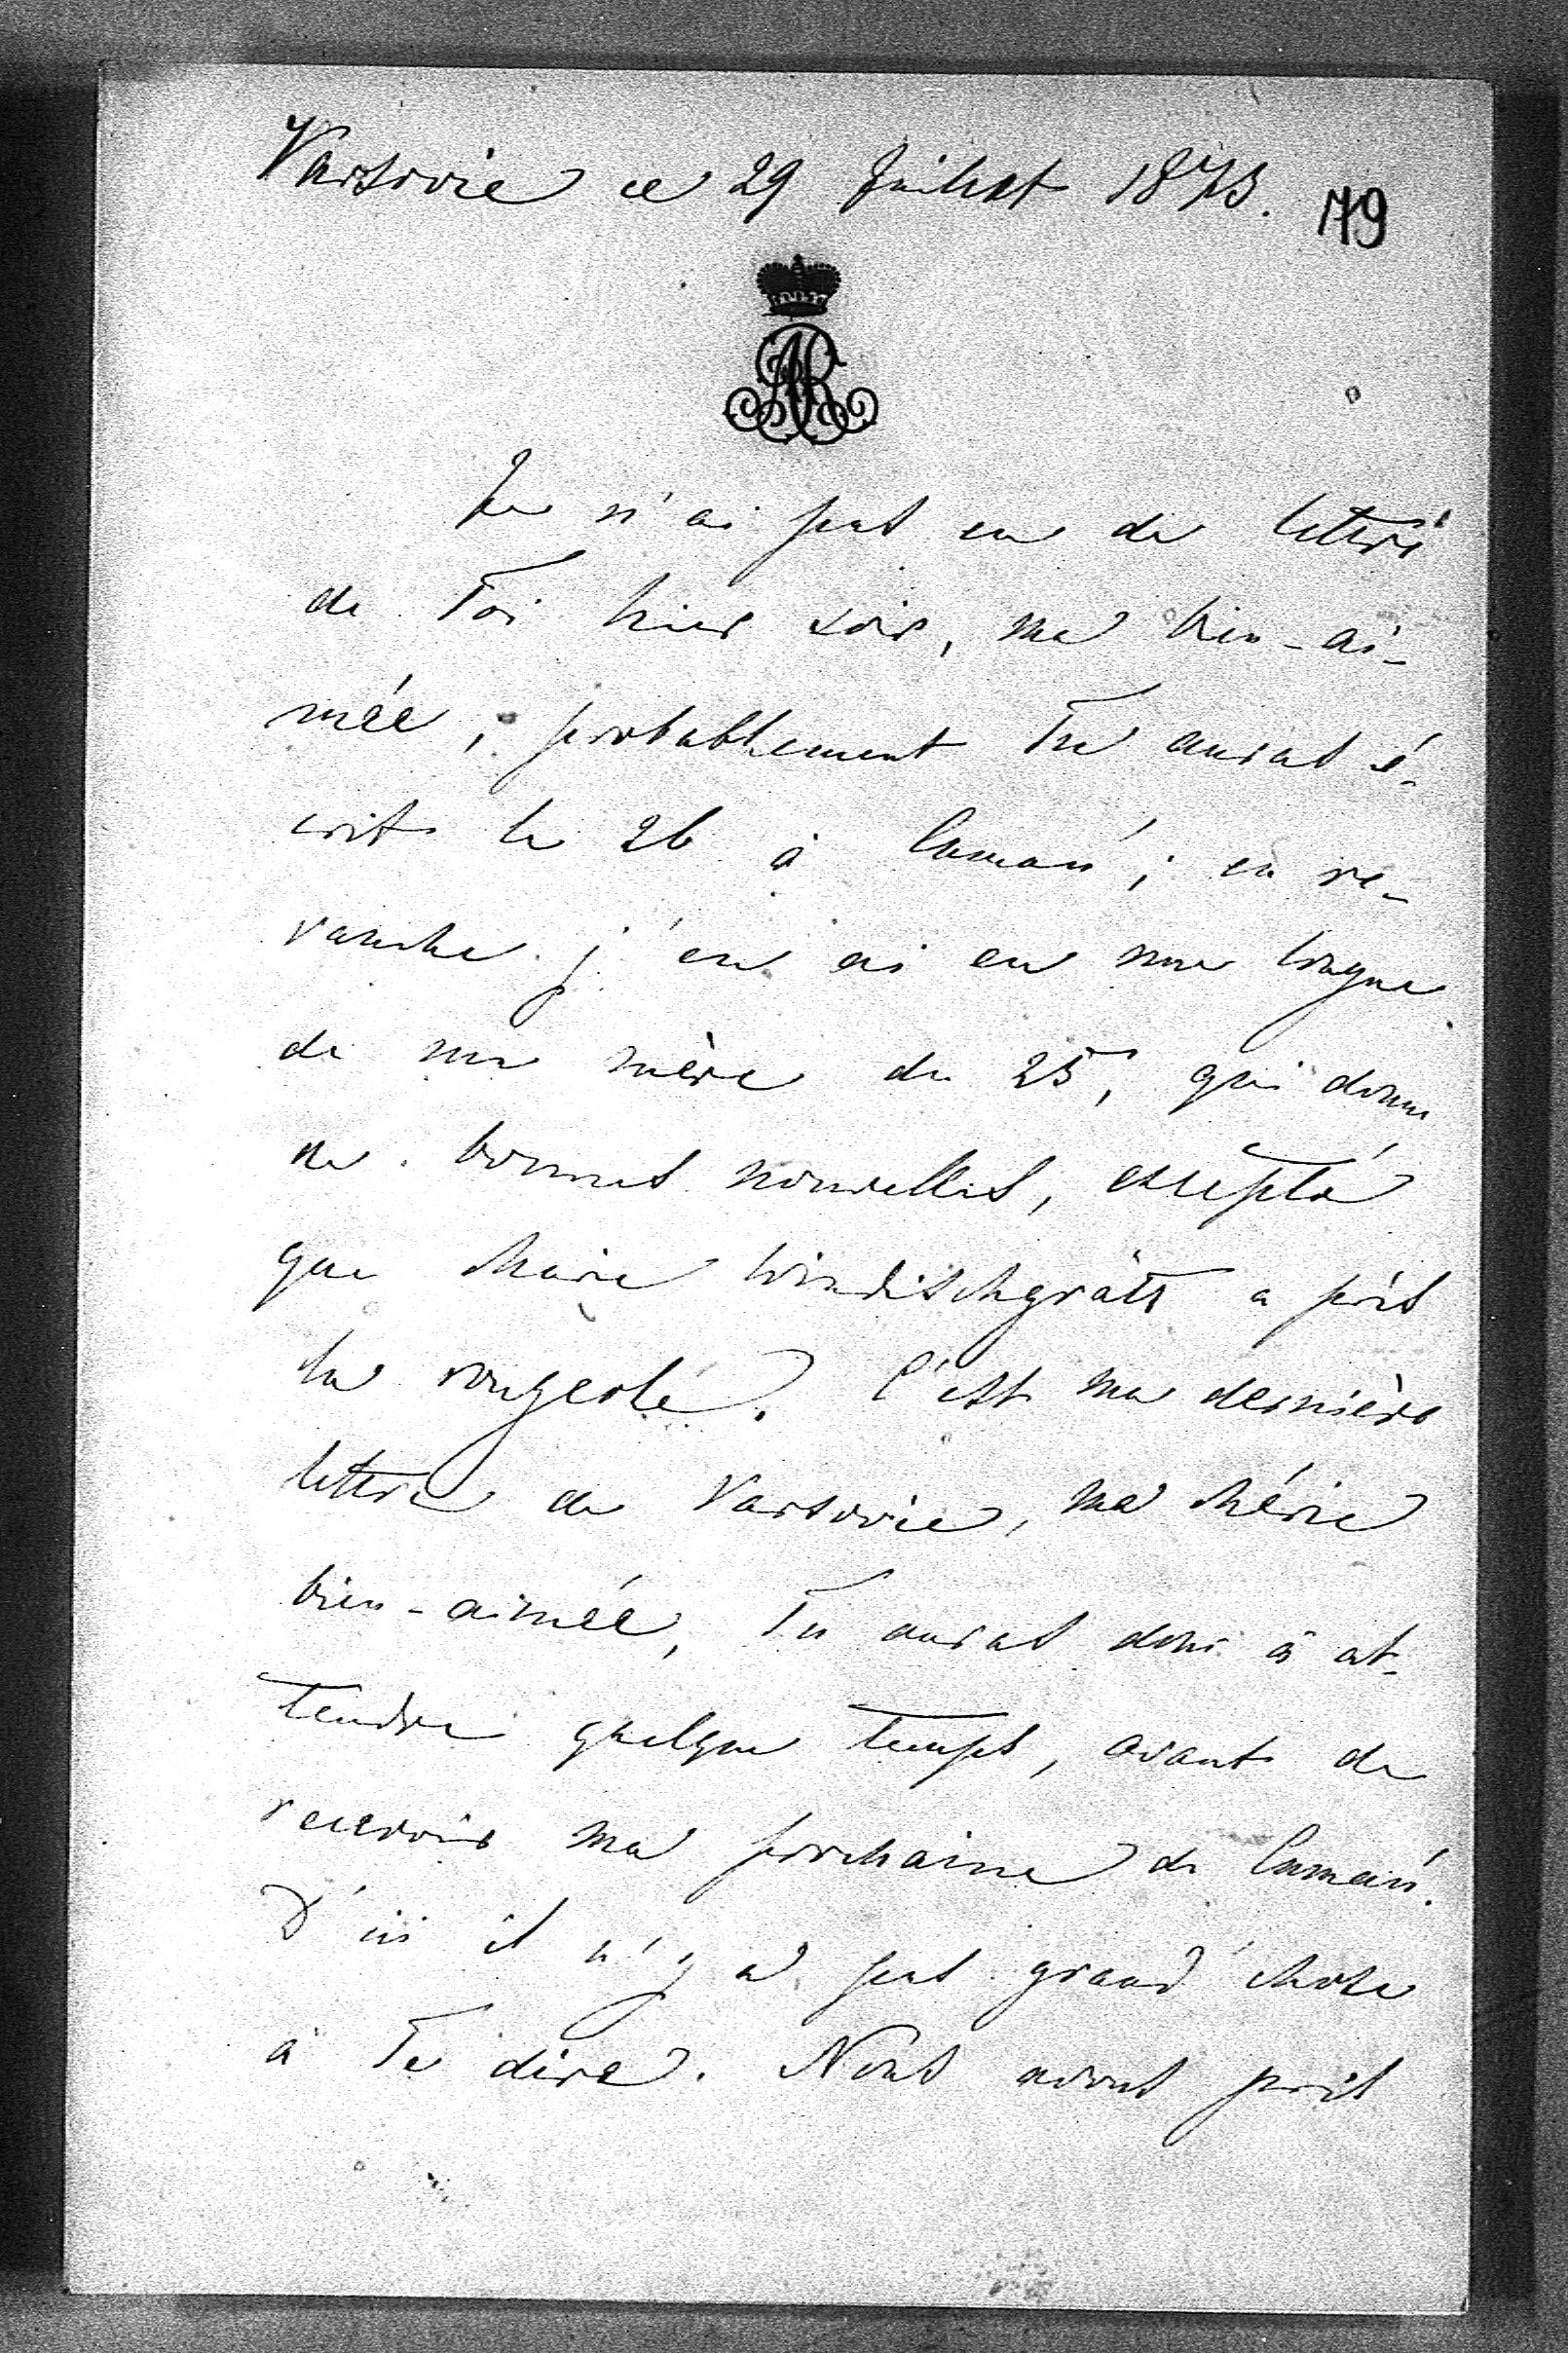 Varsovie ce 29 Juillet 1873.
179
AR
Je n'ai pas eu de lettre
de Toi hier soir, ma bien-ai-
mée, probablement Tu auras é-
crit le 26 à Cumań; en re-
vanche j'en ai eu une longue
de ma mère du 25, qui donne
de bonnes nouvelles, excepté
que Marie Windischgrätz a pris
la rougeole. C'est ma dernière
lettre de Varsovie, ma chérie
bien-aimée, Tu auras donc à at-
tendre quelque temps, avant de
recevoir ma prochaine de Cumań.
D'ici il n'y a pas grand'chose
à Te dire. Nous avons pris